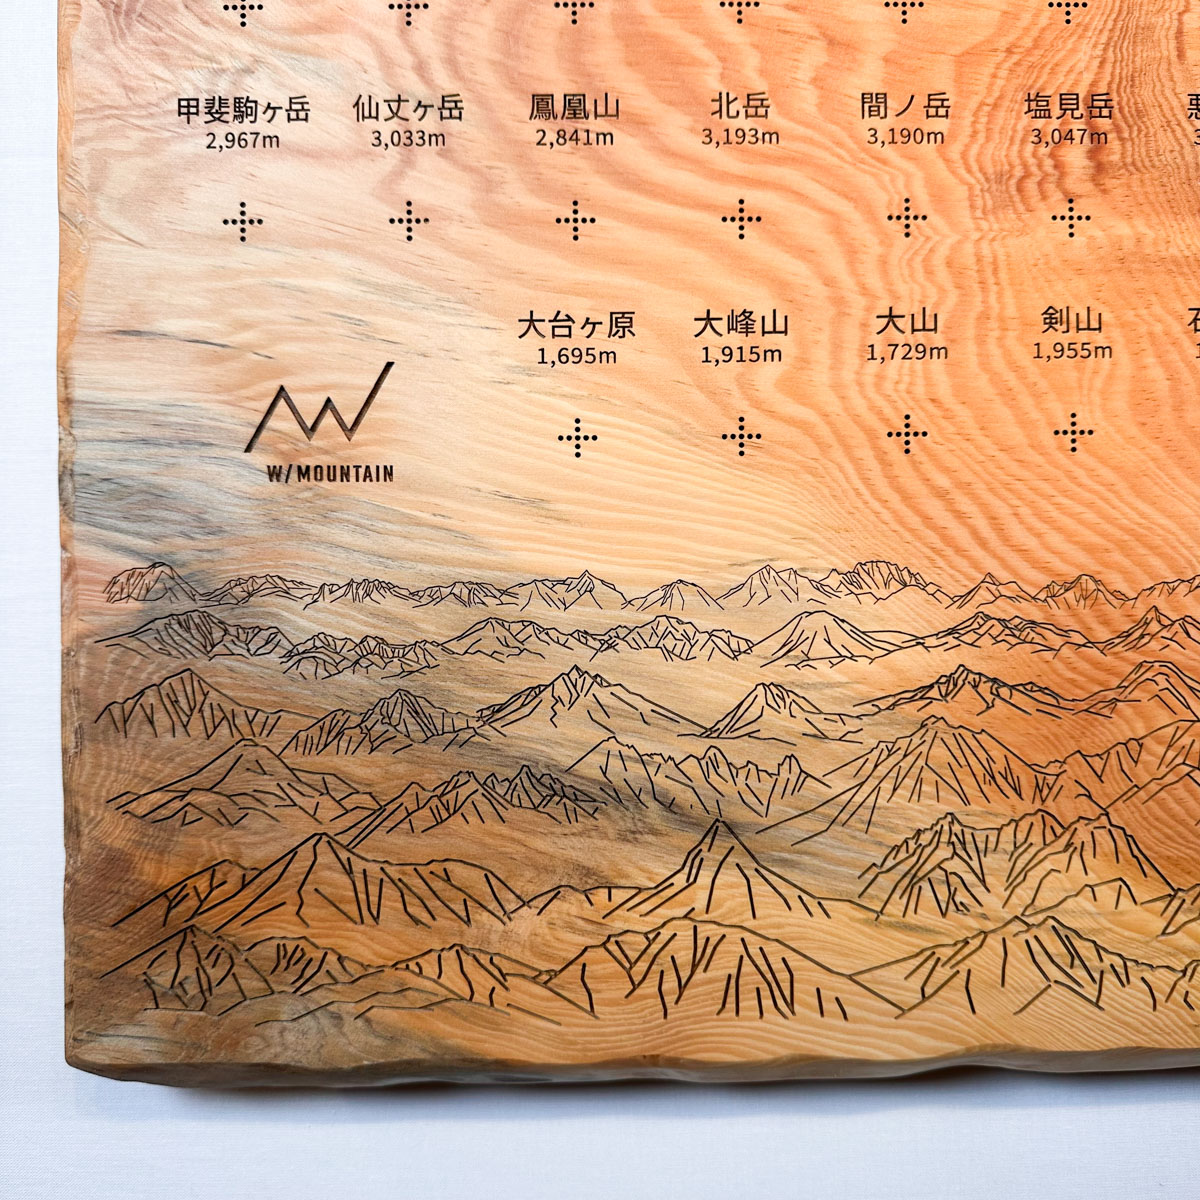 甲斐駒ヶ岳 仙丈ヶ岳 鳳凰山 北岳 間ノ岳 塩見岳
2,967m 3,033m 2,841m 3,193m 3,190m 3,047m
大台ヶ原 大峰山 大山 剣山
1,695m 1,915m 1,729m 1,955m
W/MOUNTAIN